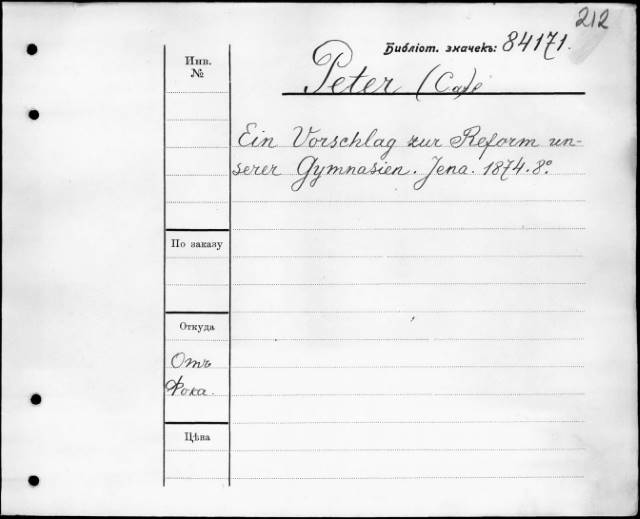 212
Библіот. значекъ: 84171.
Инв.
№
Peter (Carl
Ein Vorschlag zur Reform un-
serer Gymnasien. Jena. 1874. 8°.
По заказу
Откуда
Отъ
Фока.
Цѣна